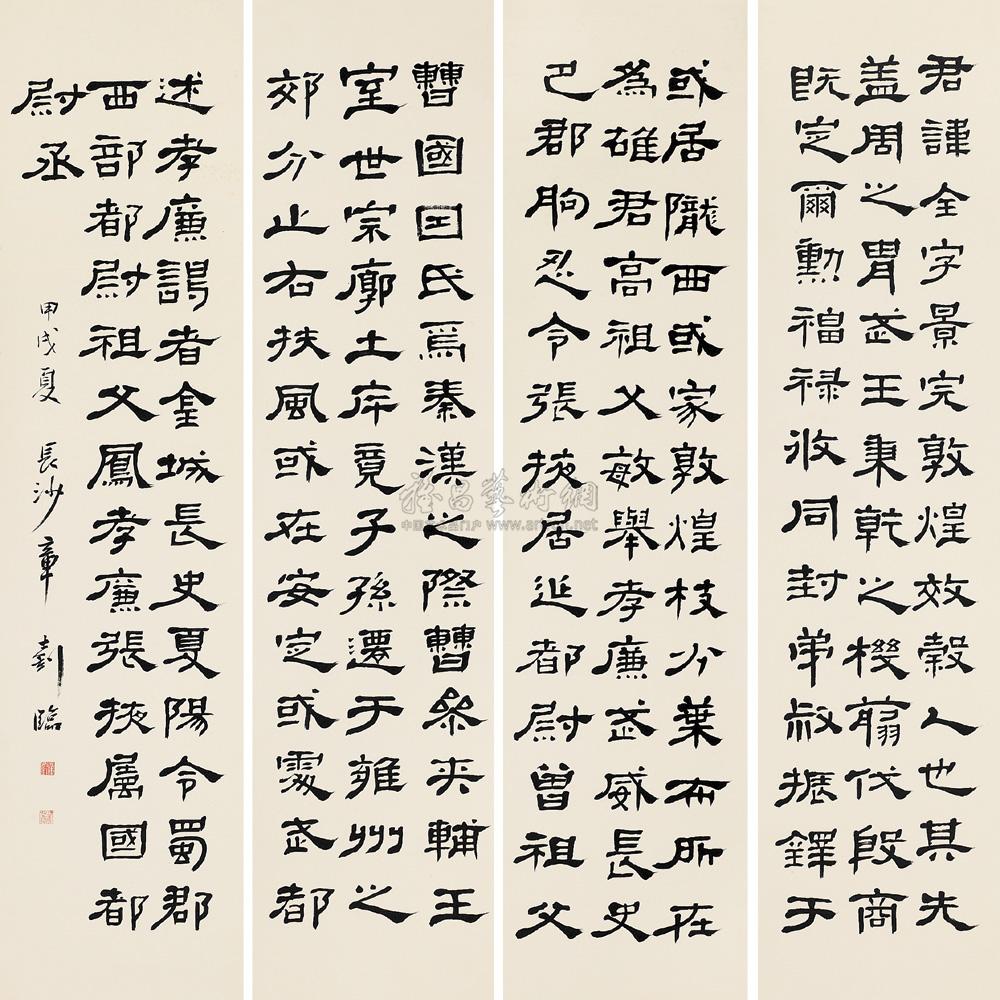 君諱全字景完敦煌效穀人也其先
盖周之胄武王秉乾之機翦伐殷商
既定爾勳福禄攸同封弟叔振鐸于
曹國因氏焉秦漢之際曹參夾輔王
室世宗廓土斥竟子孫遷于雍州之
郊分止右扶風或在安定或處武都
或居隴西或家敦煌枝分葉布所在
為雄君高祖父敏舉孝廉武威長史
巴郡朐忍令張掖居延都尉曾祖父
述孝廉謁者金城長史夏陽令蜀郡
西部都尉祖父鳳孝廉張掖屬國都
尉丞
甲戌夏 長沙章 劊臨
雅昌藝術網
中国艺术品门户 www.artron.net